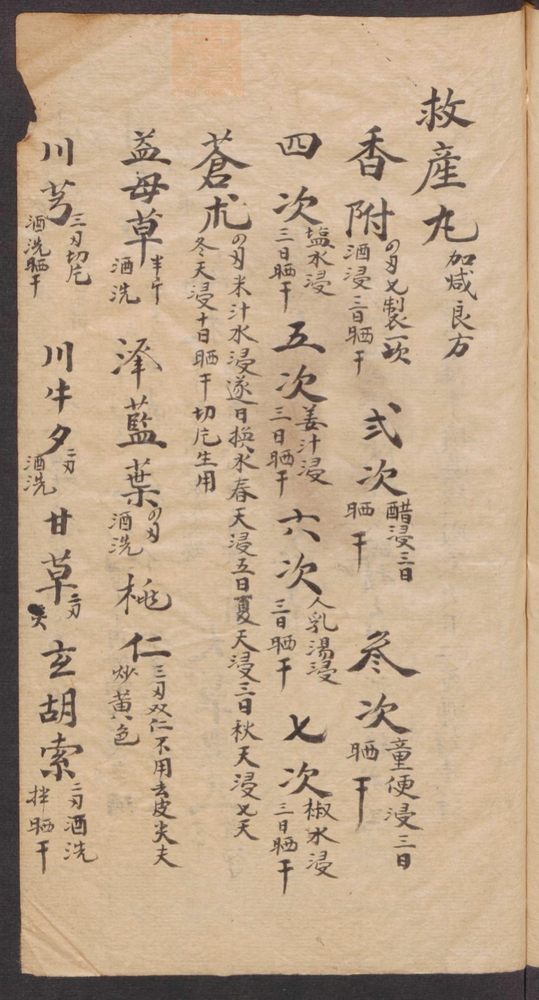 救產丸 加咸良方
香附 の刄七製一次酒浸三日晒干 弍次 醋浸三日晒干 叄次 童便浸三日晒干
四次 塩水浸三日晒干 五次 姜汁浸三日晒干 六次 人乳湯浸三日晒干 七次 椒水浸三日晒干
蒼朮 の刄米汁水浸遂日換水春天浸五日夏天浸三日秋天浸七天冬天浸十日晒干切片生用
益母草 半斤酒洗 泽藍葉 の刄酒洗 桃仁 三刄双仁不用去皮尖夫炒黄色
川芎 三刄切片酒洗晒干 川牛夕 二刄酒洗 甘草 二刄炙 玄胡索 二刄酒洗拌晒干